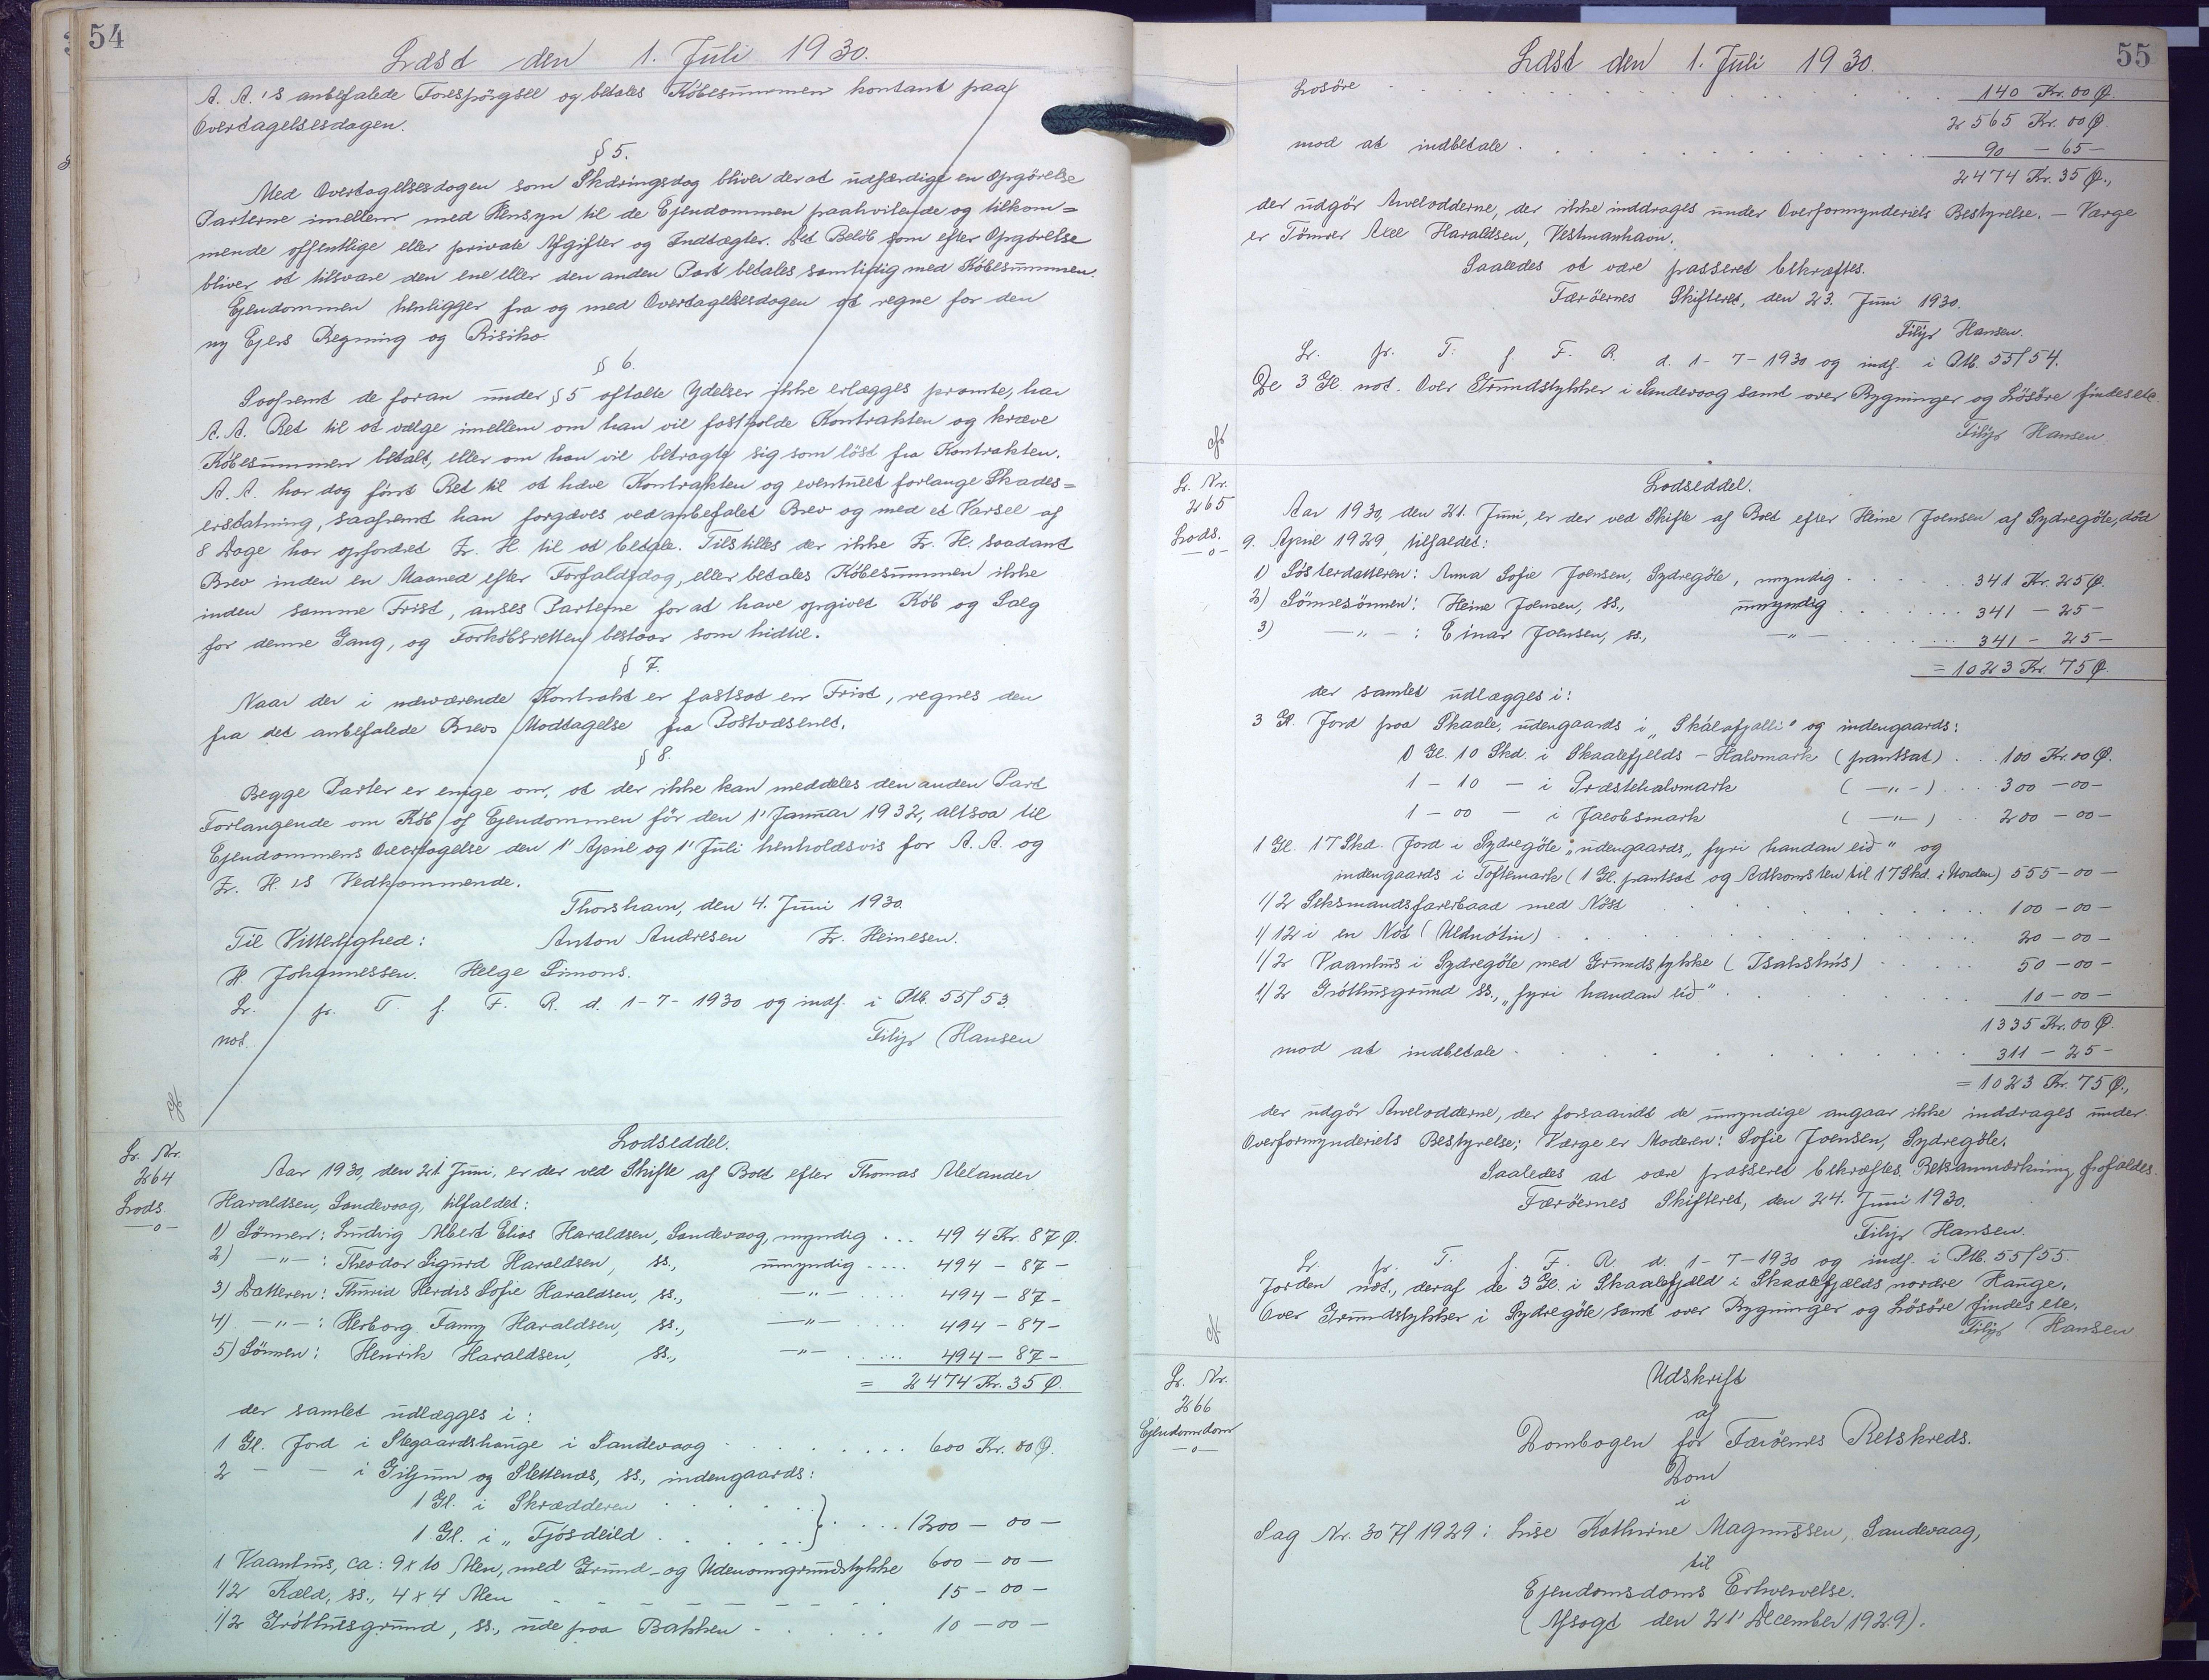 54
Læst den 1. Juli 1930.
A. A.'s anbefalede Forespörgsel og betales Köbesummen kontant paa
Overtagelsesdagen.
§ 5.
Med Overtagelsesdagen som Skæringsdag bliver der at udfærdige en Opgörelse
Parterne imellem med Hensyn til de Ejendommen paahvilende og tilkom=
mende offentlige eller private Afgifter og Indtægter. Det Belöb som efter Opgörelse
bliver at tilsvare den ene eller den anden Part betales samtidig med Köbesummen.
Ejendommen henligger fra og med Overtagelsesdagen at regne for den
ny Ejers Regning og Risiko.
§ 6.
Saafremt de foran under § 5 oftalte Ydelser ikke erlægges promte, har
A. A. Ret til at vælge imellem om han vil fastholde Kontrakten og kræve
Köbesummen betalt, eller om han vil betragte sig som löst fra Kontrakten.
A. A. har dog först Ret til at hæve Kontrakten og eventuelt forlange Skades=
erstatning, saafremt han forgæves ved anbefalet Brev og med et Varsel af
8 Dage har opfordret Z. H. til at betale. Tilstilles der ikke Z. H. saadant
Brev inden en Maaned efter Forfaldsdag, eller betales Köbesummen ikke
inden samme Frist, anses Parterne for at have opgivet Köb og Salg
for denne Gang, og Forköbsretten bestaar som hidtil.
§ 7.
Naar der i nærværende Kontrakt er fastsat en Frist, regnes den
fra det anbefalede Brevs Modtagelse fra Postvæsenet.
§ 8.
Begge Parter er enige om, at der ikke kan meddeles den anden Part
Forlangende om Köb af Ejendommen för den 1' Januar 1932, altsaa til
Ejendommens Overtagelse den 1' April og 1' Juli henholdsvis for A. A. og
Z. H.'s Vedkommende.
Thorshavn, den 4. Juni 1930.
Til Vitterlighed: Anton Andresen Z. Heinesen.
H. Johannessen. Helge Simons.
Lr. pr. T. f. F. R. d. 1-7-1930 og indf. i Ptb. 55/53.
not. Filip Hansen
Lodseddel.
Lr. Nr.
264
Lods.
—o—
Aar 1930, den 21. Juni, er der ved Skifte af Boet efter Thomas Alexander
Haraldsen, Sandevaag, tilfaldet:
1) Sönnen: Ludvig Albert Elias Haraldsen, Sandevaag, myndig ... 494 Kr. 87 Ø.
2) —"— : Theodor Sigurd Haraldsen, ss., umyndig .... 494 — 87 —
3) Datteren: Thurid Herdis Sofie Haraldsen, ss., —"— ..... 494 — 87 —
4) —"— : Herborg Fanny Haraldsen, ss., —"— .... 494 — 87 —
5) Sönnen: Henrik Haraldsen, ss., —"— ..... 494 — 87 —
= 2474 Kr. 35 Ø.
der samlet udlægges i:
1 Gl. Jord i Stegaardshauge i Sandevaag ........ 600 Kr. 00 Ø.
2 — — i Giljum og Slettenæs, ss., indengaards:
1 Gl. i Skrædderen ......
1 Gl. i „Fjósdeild ...... } .... 1200 — 00 —
1 Vaanhus, ca: 9 x 10 Alen, med Grund- og Udenomsgrundstykke 600 — 00 —
1/2 Kæld, ss., 4 x 4 Alen — — — — — — 15 — 00 —
1/2 Gróthúsgrund, ss., ude paa Bakken ..... 10 — 00 —
55
Læst den 1. Juli 1930.
Losöre .......... 140 Kr. 00 Ø.
2565 Kr. 00 Ø.
mod at indbetale .......... 90 — 65 —
2474 Kr. 35 Ø.,
der udgör Arvelodderne, der ikke inddrages under Overformynderiets Bestyrelse. — Værge
er Tömrer Axel Haraldsen, Vestmanhavn.
Saaledes at være passeret bekræftes.
Færöernes Skifteret, den 23. Juni 1930.
Filip Hansen.
Lr. pr. T. f. F. R. d. 1-7-1930 og indf. i Ptb. 55/54.
De 3 Gl. not. Over Grundstykker i Sandevaag samt over Bygninger og Lösöre findes etc.
Filip Hansen.
Lodseddel.
Lr. Nr.
265
Lods.
—o—
Aar 1930, den 21. Juni, er der ved Skifte af Boet efter Heine Joensen af Sydregöte, död
9. April 1929, tilfaldet:
1) Sösterdatteren: Anna Sofie Joensen, Sydregöte, myndig ...... 341 Kr. 25 Ø.
2) Sönnesönnen: Heine Joensen, ss., umyndig ....... 341 — 25 —
3) —"— : Einar Joensen, ss., —"— ....... 341 — 25 —
= 1023 Kr. 75 Ø.
der samlet udlægges i:
3 Gl. Jord paa Skaale, udengaards i „Skálafjalli" og indengaards:
1) Gl. 10 Skd. i Skaalefjelds - Halvmark (pantsat) ... 100 Kr. 00 Ø.
1 — 10 — i Præstehalvmark (—"—) .... 300 — 00 —
1 — 00 — i Jacobsmark (—"—) ... 200 — 00 —
1 Gl. 17 Skd. Jord i Sydregöte „udengaards „fyri handan eið" og
indengaards i Toftemark (1 Gl. pantsat og Adkomsten til 17 Skd. i Orden) 555 — 00 —
1/2 Seksmandsfarerbaad med Nöst .......... 100 — 00 —
1/12 i en Not (Uldnótin) .......... 20 — 00 —
1/2 Vaanhus i Sydregöte med Grundstykke (Isakshús) ...... 50 — 00 —
1/2 Gróthúsgrund ss., „fyri handan eið" ....... 10 — 00 —
1335 Kr. 00 Ø.
mod at indbetale .......... 311 — 25 —
= 1023 Kr. 75 Ø.,
der udgör Arvelodderne, der forsaavidt de umyndige angaar ikke inddrages under
Overformynderiets Bestyrelse; Værge er Moderen: Sofie Joensen, Sydregöte.
Saaledes at være passeret bekræftes. Retsanmærkning frafaldes.
Færöernes Skifteret, den 24. Juni 1930.
Filip Hansen.
Lr. pr. T. f. F. R. d. 1-7-1930 og indf. i Ptb. 55/55.
Jorden not., deraf de 3 Gl. i Skaalefjæld i Skaalefjælds nordre Hauge.
Over Grundstykker i Sydregöte samt over Bygninger og Lösöre findes etc.
Filip Hansen
Lr. Nr.
266
Ejendomsdom
—o—
Udskrift
af
Dombogen for Færöernes Retskreds.
Dom
i
Sag Nr. 307/1929: Lise Kathrine Magnussen, Sandevaag,
til
Ejendomsdoms Erhvervelse.
(Afsagt den 21' December 1929).